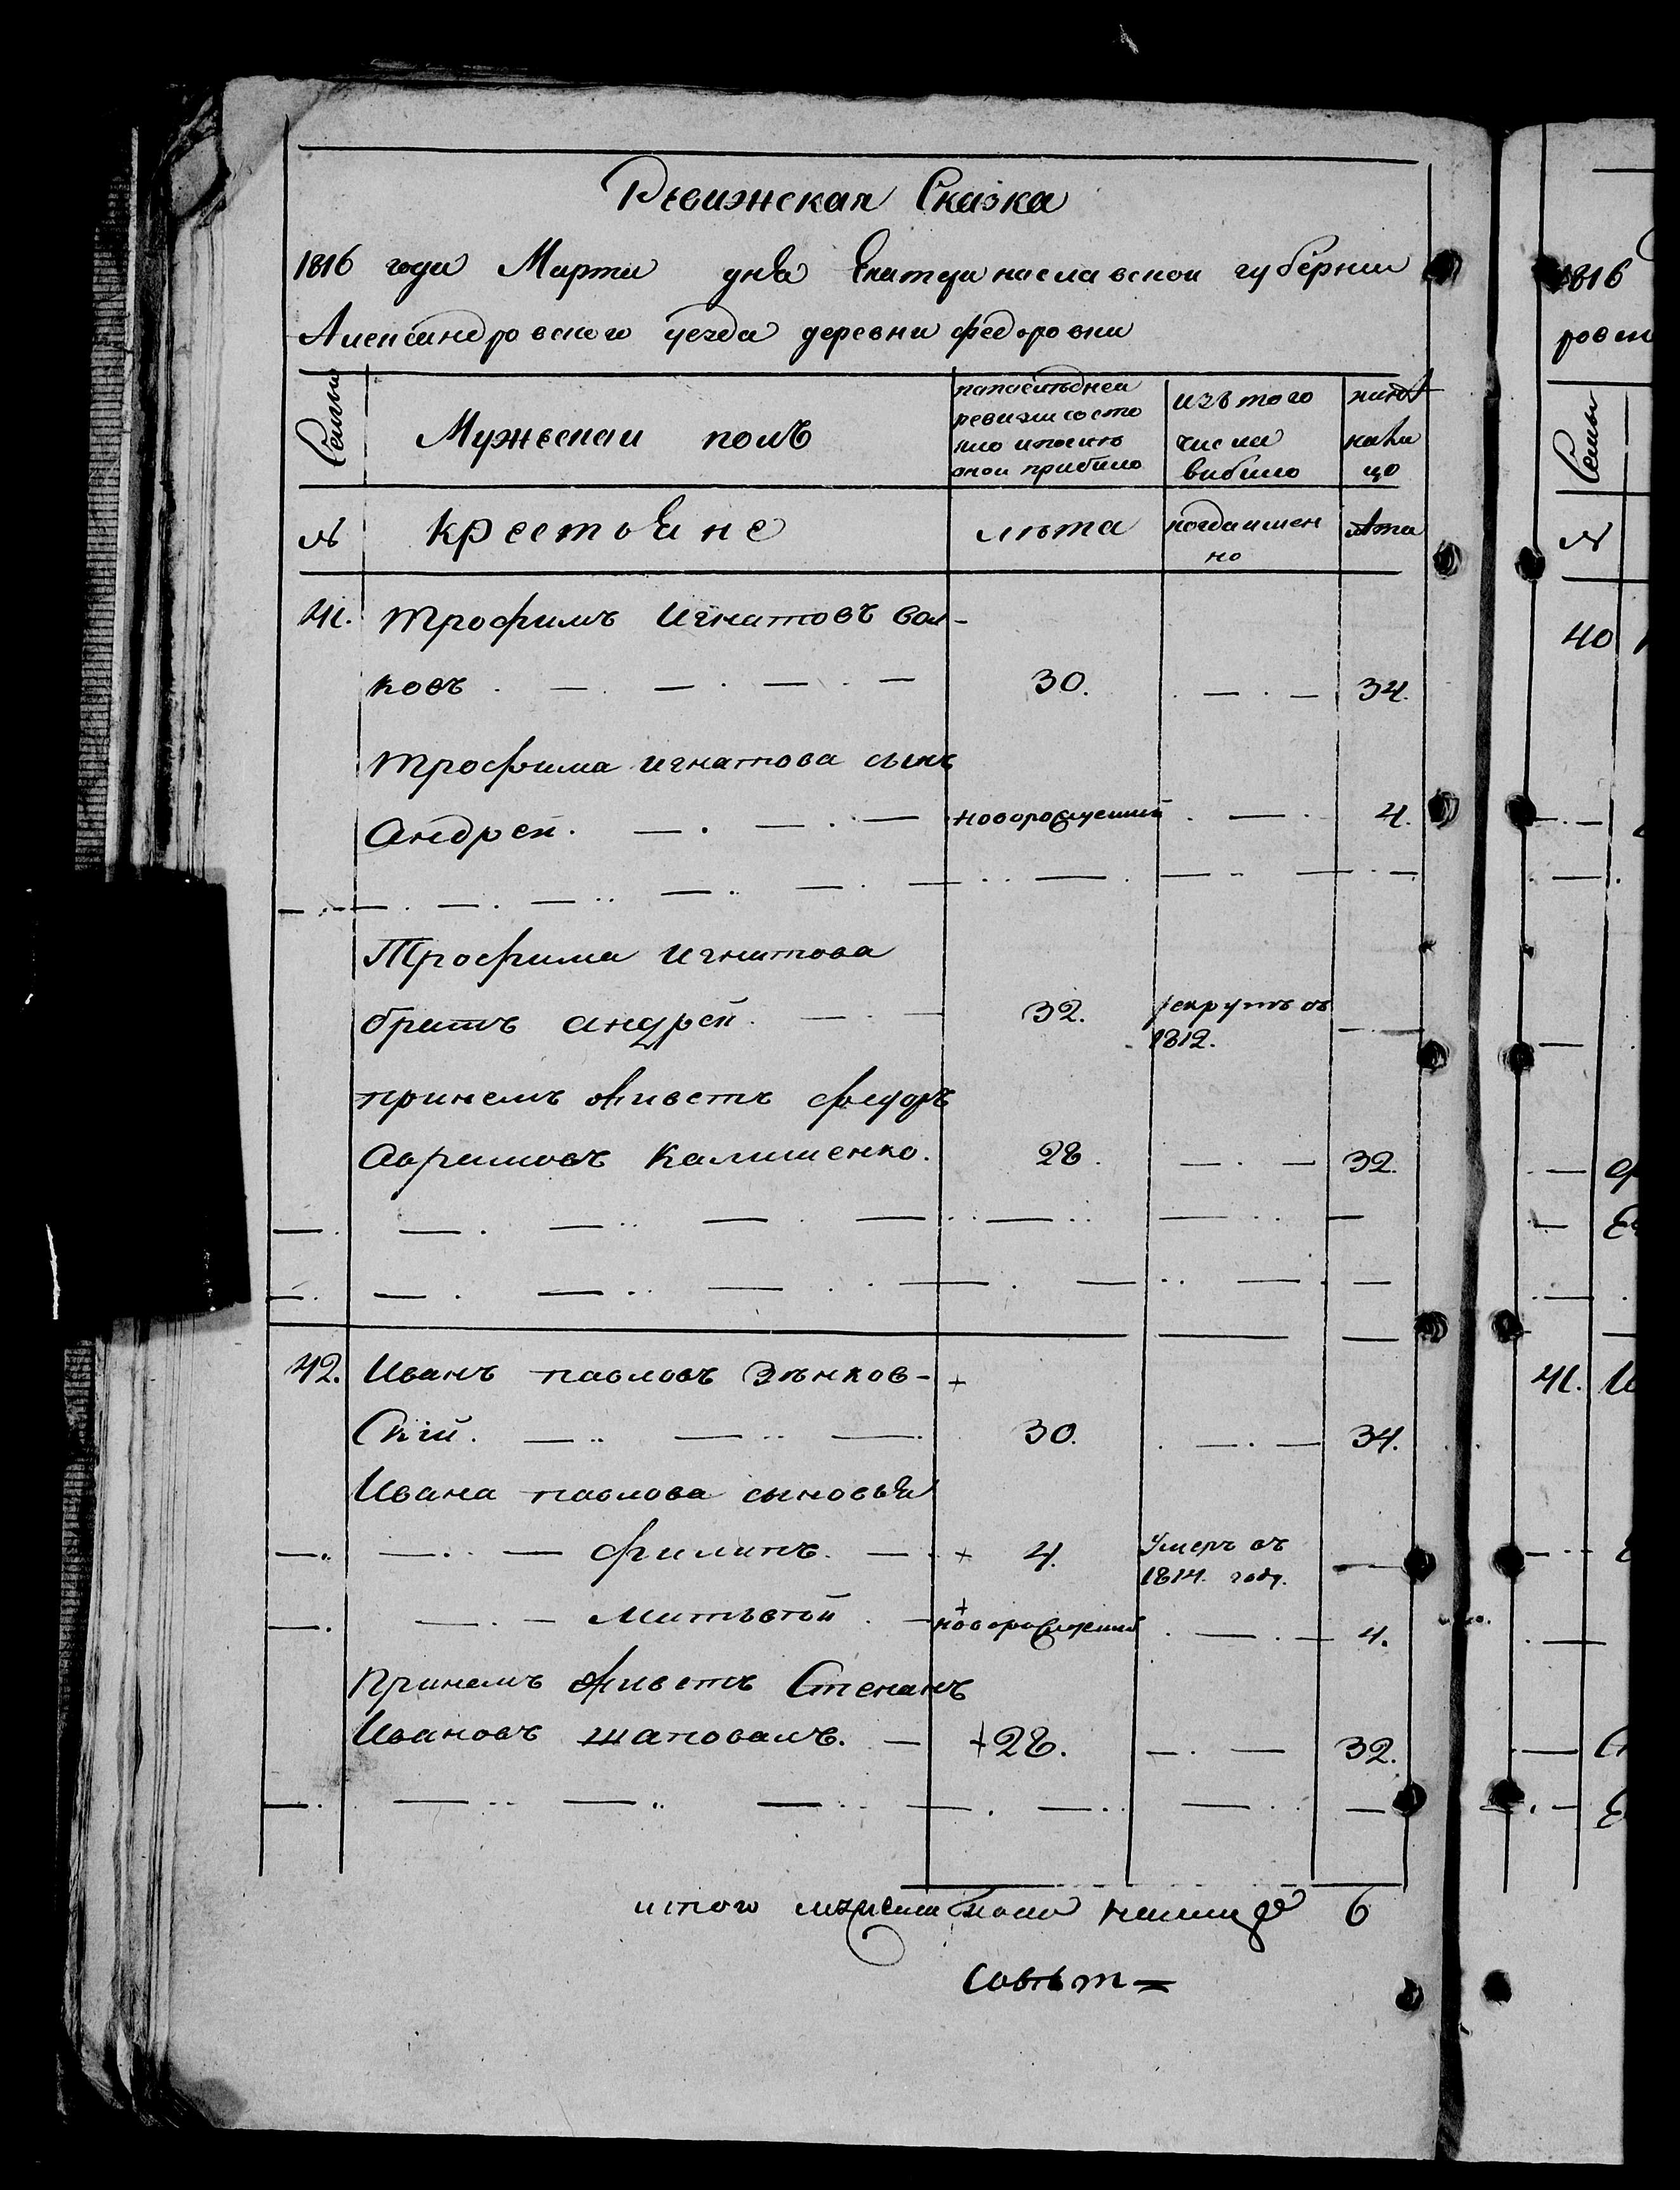 Ревижская Сказка
1816 года Марта дня Екатеринославской губернии
Александровского уезда деревни Федоровки
Семьи
Мужескаи полъ
папоследнеи
ревизии состо
яло ипосле
оной прибыло
изъ того
числа
выбыло
ныне
нали
цо
№
крестьяне
лета
когда имен
но
лета
41. Трофимъ Игнатовъ Вол-
ковъ . — . — . — . — 30. . — . — 34.
Трофима игнатова сынъ
Андрей. — . — . — новорожденний . — . 4.
Трофима игнатова
братъ андрей. — . — 32. рекрутъ въ
1812.
принемъ живетъ федоръ
Аврамовъ Калишенко. 28. — . — 32.
42. Иванъ павловъ Зенков- +
Скій. — .. — .. — . 30. . — . — 34.
Ивана павлова сыновья
филипъ. — . + 4. Умеръ въ
1814. году.
Матьвей . — + новорожденний . — . — 4.
Принемъ живетъ Степанъ
Ивановъ шаповалъ. — +28. — . — 32.
итого мужеска пола налице 6
Советъ =
1816
Семьи
№
40
41.